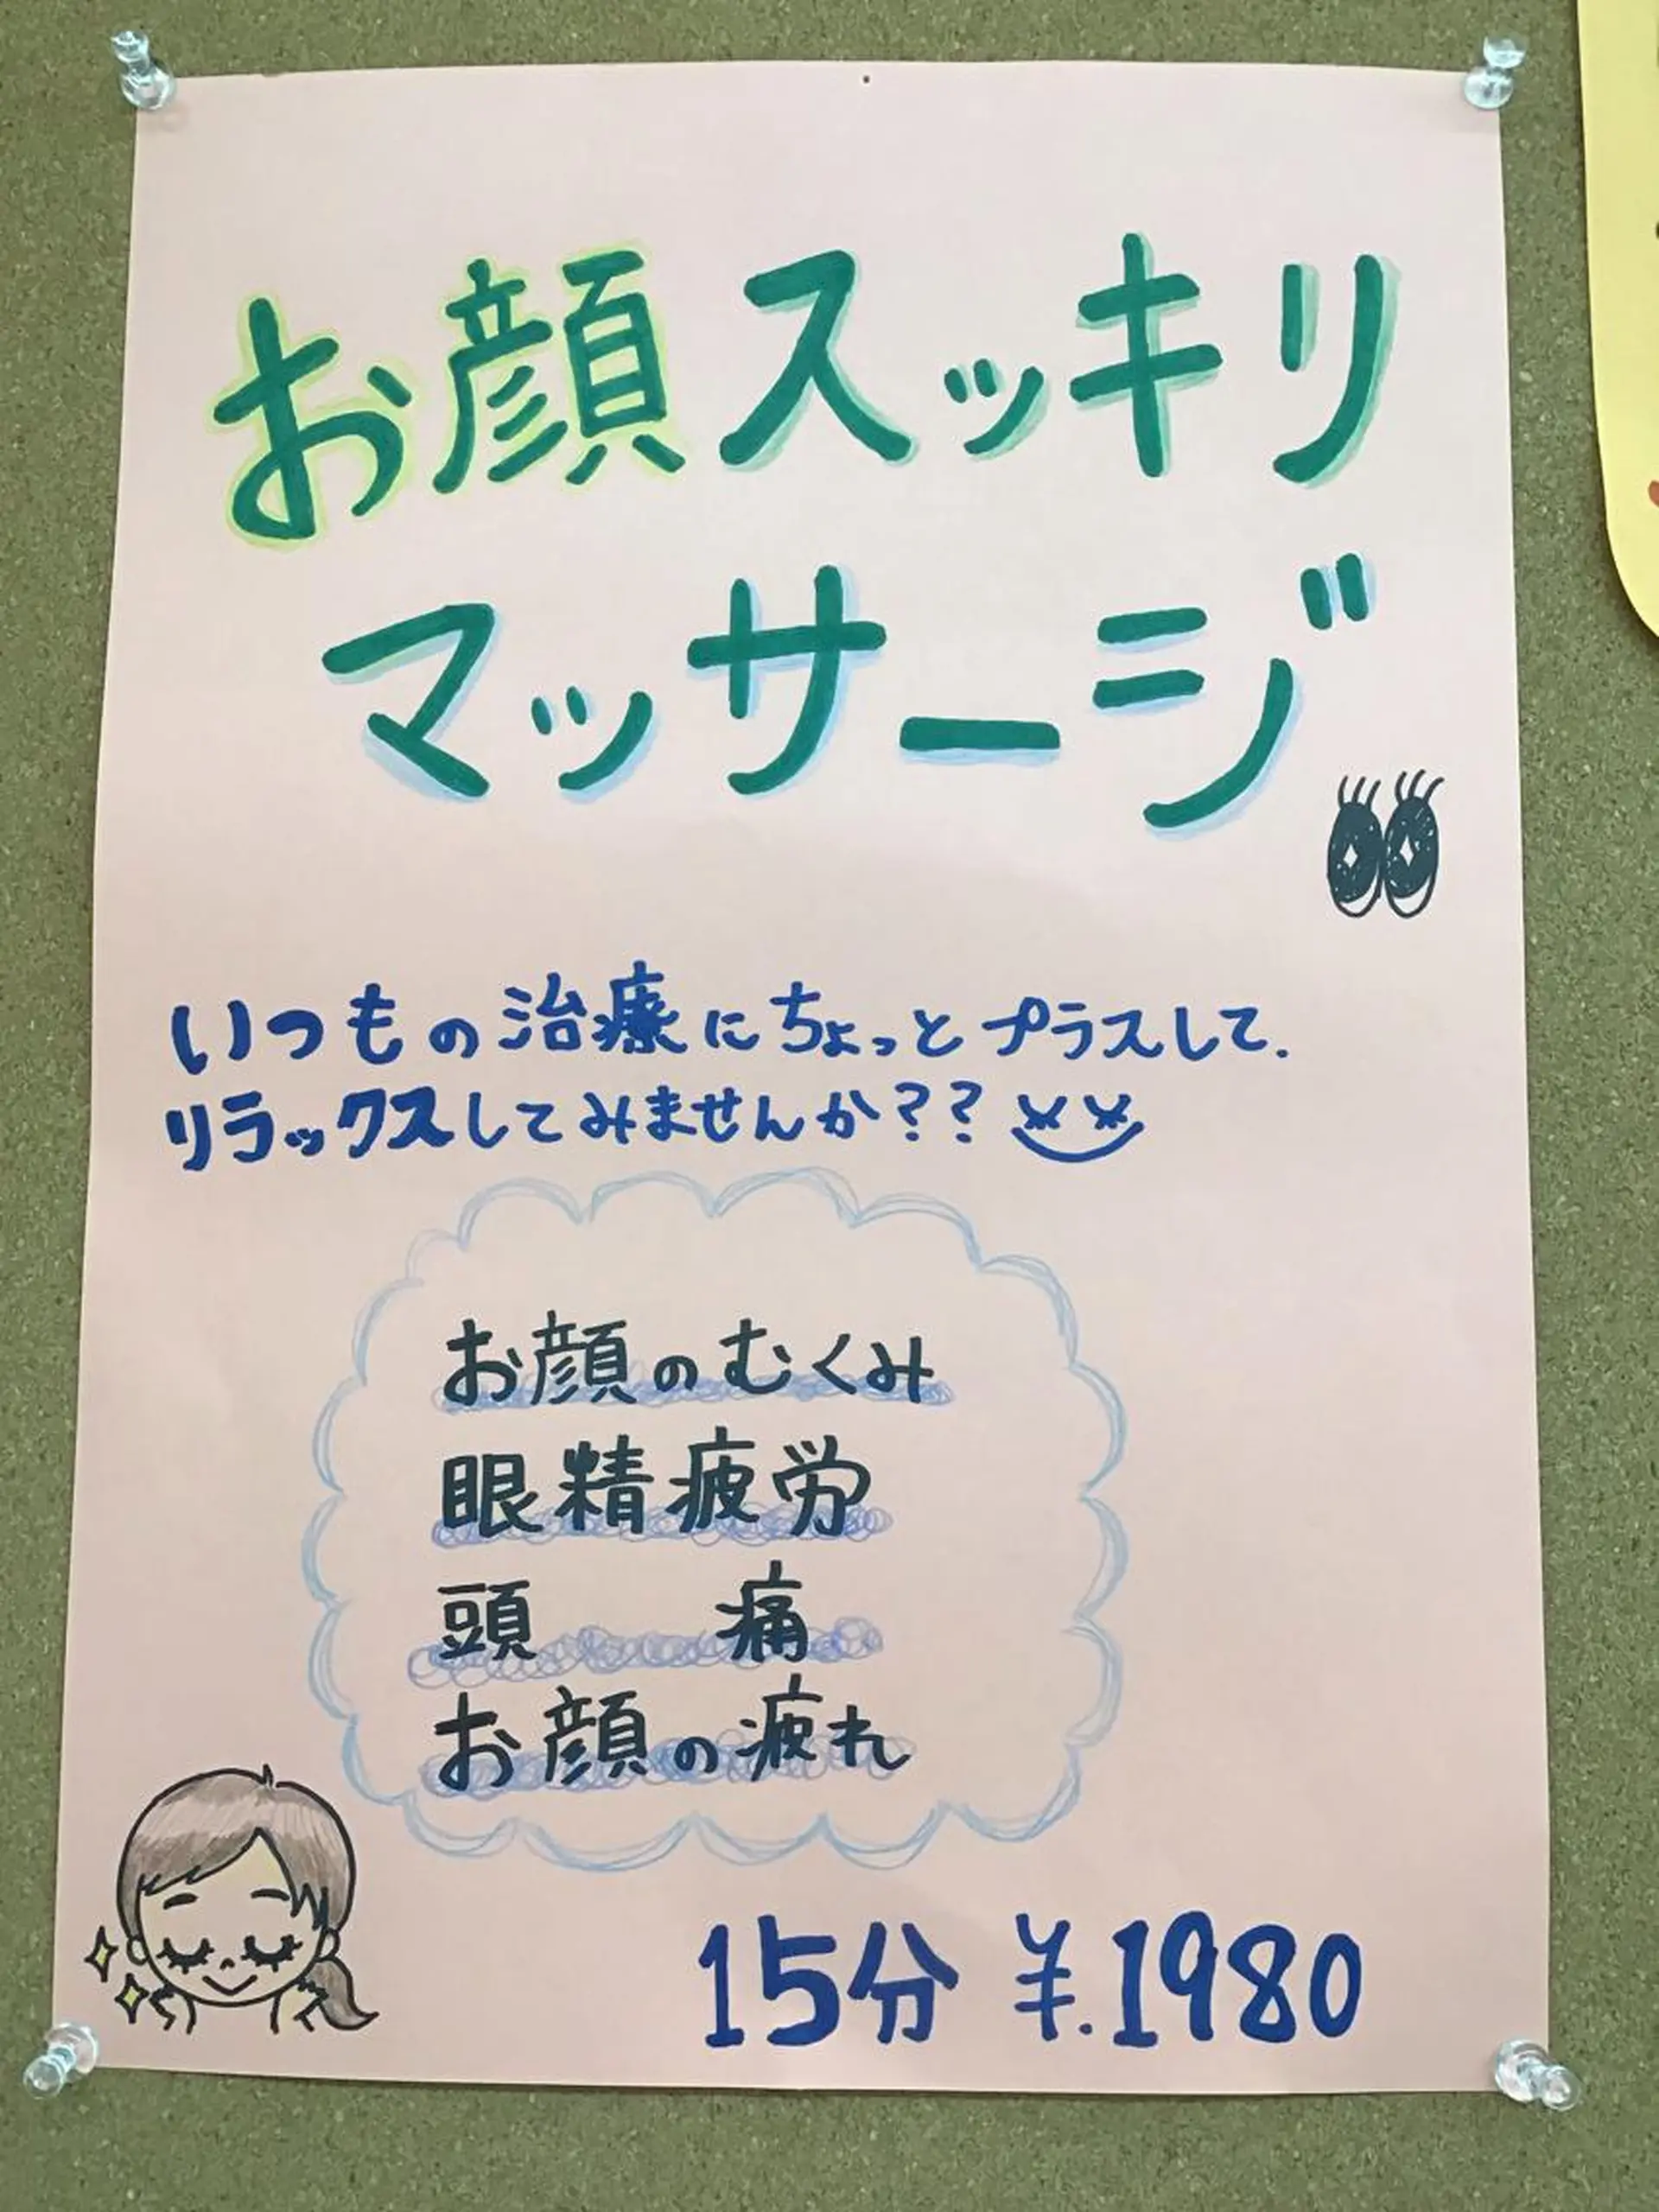 お顔スッキリ
マッサージ
いつもの治療にちょっとプラスして.
リラックスしてみませんか??
お顔のむくみ
眼精疲労
頭　痛
お顔の疲れ
15分 ¥.1980